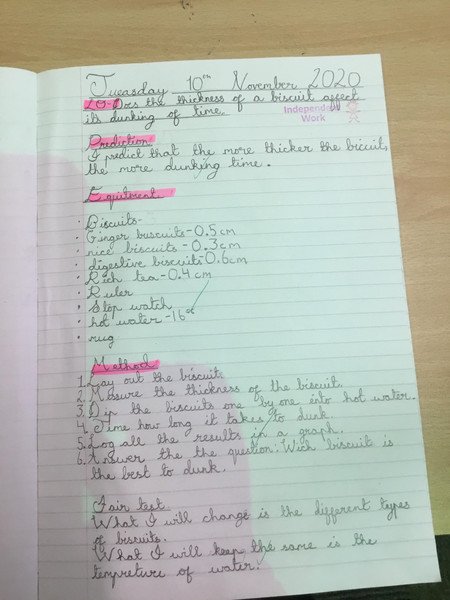 Tueasday 10th November 2020
LO-Does the thickness of a biscuit affect
its dunking of time.
Independent
Work
Prediction
I predict that the more thicker the biscuit,
the more dunking time.
Equitment
Biscuits-
Ginger buscuits-0.5cm
nice biscuits-0.3cm
digestive biscuits-0.6cm
Rich tea-0.4cm
Ruler
Stop watch
hot water-16
mug
Method
1. Lay out the biscuit.
2. Messure the thickness of the biscuit.
3. Dip the biscuits one by one into hot water.
4. Time how long it takes to dunk.
5. Log all the results in a graph.
6. Answer the the question: Wich biscuit is
the best to dunk.
Fair test
What I will change is the different types
of biscuits.
What I will keep the same is the
tempreture of water.